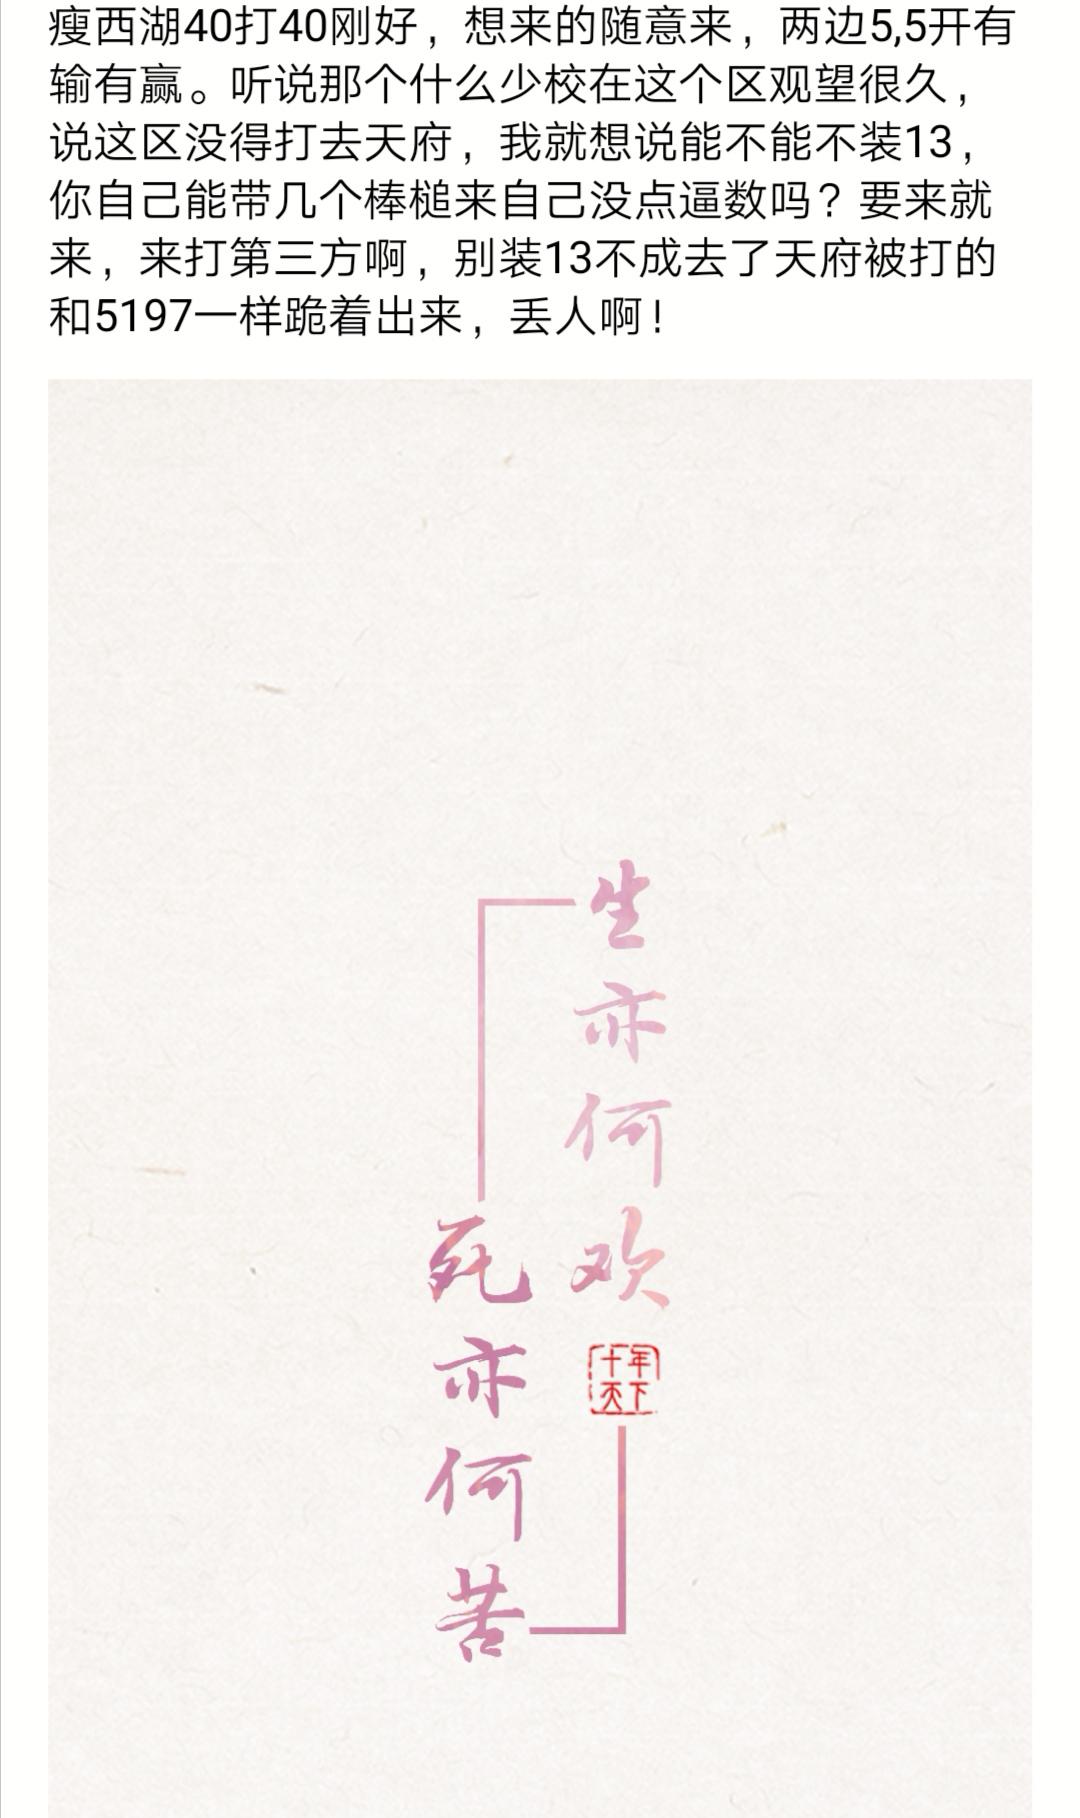 瘦西湖40打40刚好，想来的随意来，两边5,5开有
输有赢。听说那个什么少校在这个区观望很久，
说这区没得打去天府，我就想说能不能不装13，
你自己能带几个棒槌来自己没点逼数吗？要来就
来，来打第三方啊，别装13不成去了天府被打的
和5197一样跪着出来，丢人啊！
生亦何欢
死亦何苦
十年
天下